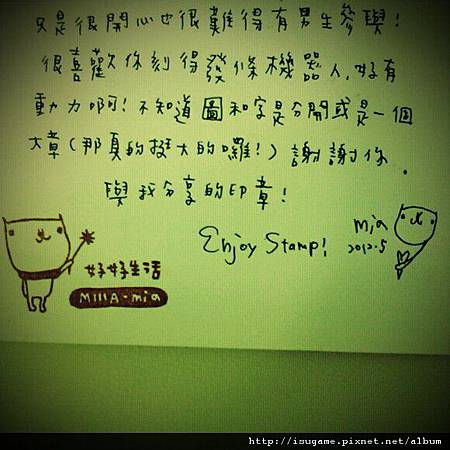 只是很開心也很難得有男生參與!
很喜歡你刻得發條機器人,好有
動力啊!不知道圖和字是分開或是一個
大章(那真的挺大的囉!)謝謝你.
與我分享的印章!
Enjoy Stamp!
mia
2012.5
好好生活
MIIIA-mia
http://isugame.pixnet.net/album